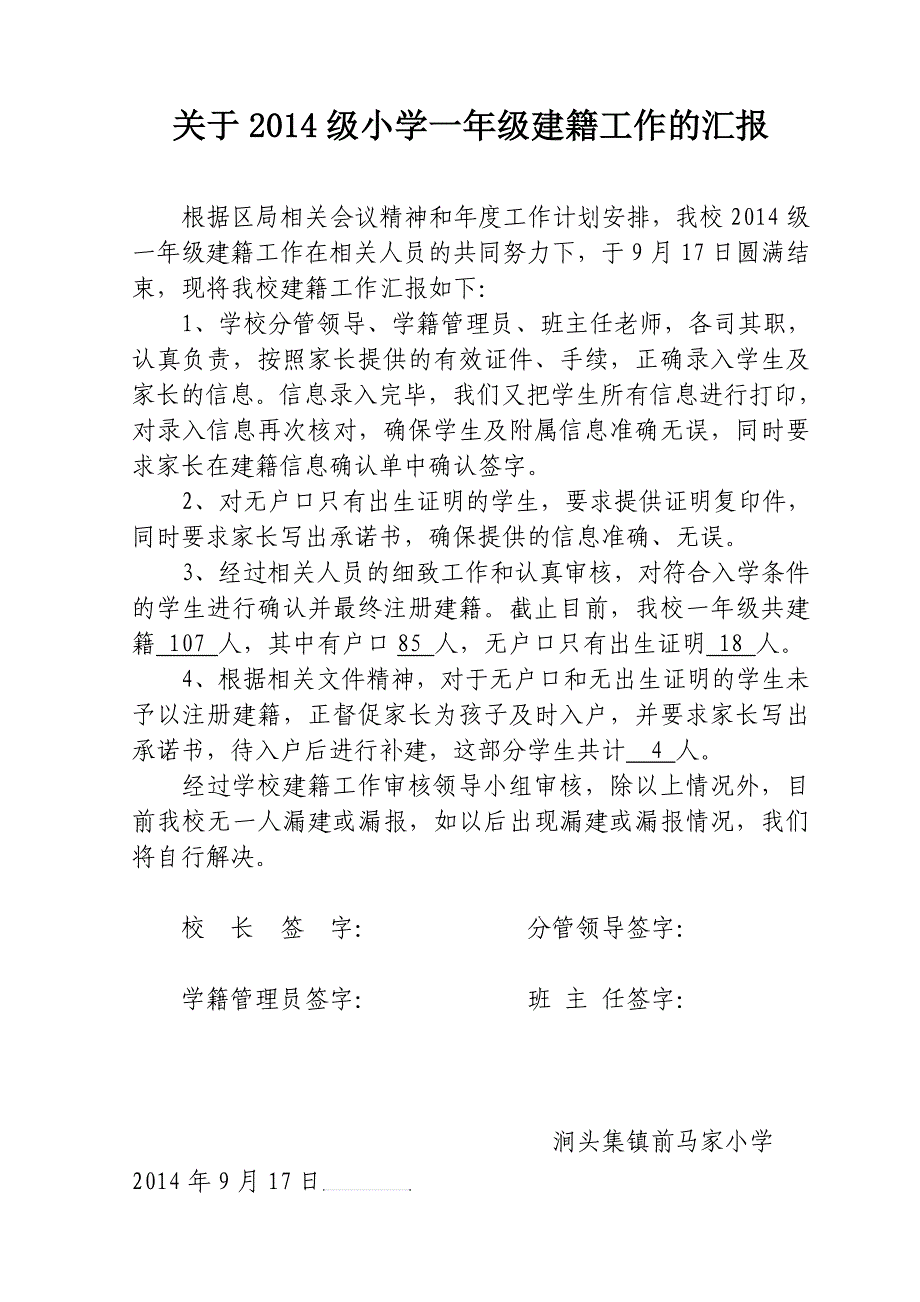 关于2014级小学一年级建籍工作的汇报
根据区局相关会议精神和年度工作计划安排，我校2014级
一年级建籍工作在相关人员的共同努力下，于9月17日圆满结
束，现将我校建籍工作汇报如下：
1、学校分管领导、学籍管理员、班主任老师，各司其职，
认真负责，按照家长提供的有效证件、手续，正确录入学生及
家长的信息。信息录入完毕，我们又把学生所有信息进行打印，
对录入信息再次核对，确保学生及附属信息准确无误，同时要
求家长在建籍信息确认单中确认签字。
2、对无户口只有出生证明的学生，要求提供证明复印件，
同时要求家长写出承诺书，确保提供的信息准确、无误。
3、经过相关人员的细致工作和认真审核，对符合入学条件
的学生进行确认并最终注册建籍。截止目前，我校一年级共建
籍 107 人，其中有户口 85 人，无户口只有出生证明 18 人。
4、根据相关文件精神，对于无户口和无出生证明的学生未
予以注册建籍，正督促家长为孩子及时入户，并要求家长写出
承诺书，待入户后进行补建，这部分学生共计 4 人。
经过学校建籍工作审核领导小组审核，除以上情况外，目
前我校无一人漏建或漏报，如以后出现漏建或漏报情况，我们
将自行解决。
校 长 签 字： 分管领导签字：
学籍管理员签字： 班 主 任签字：
涧头集镇前马家小学
2014年9月17日